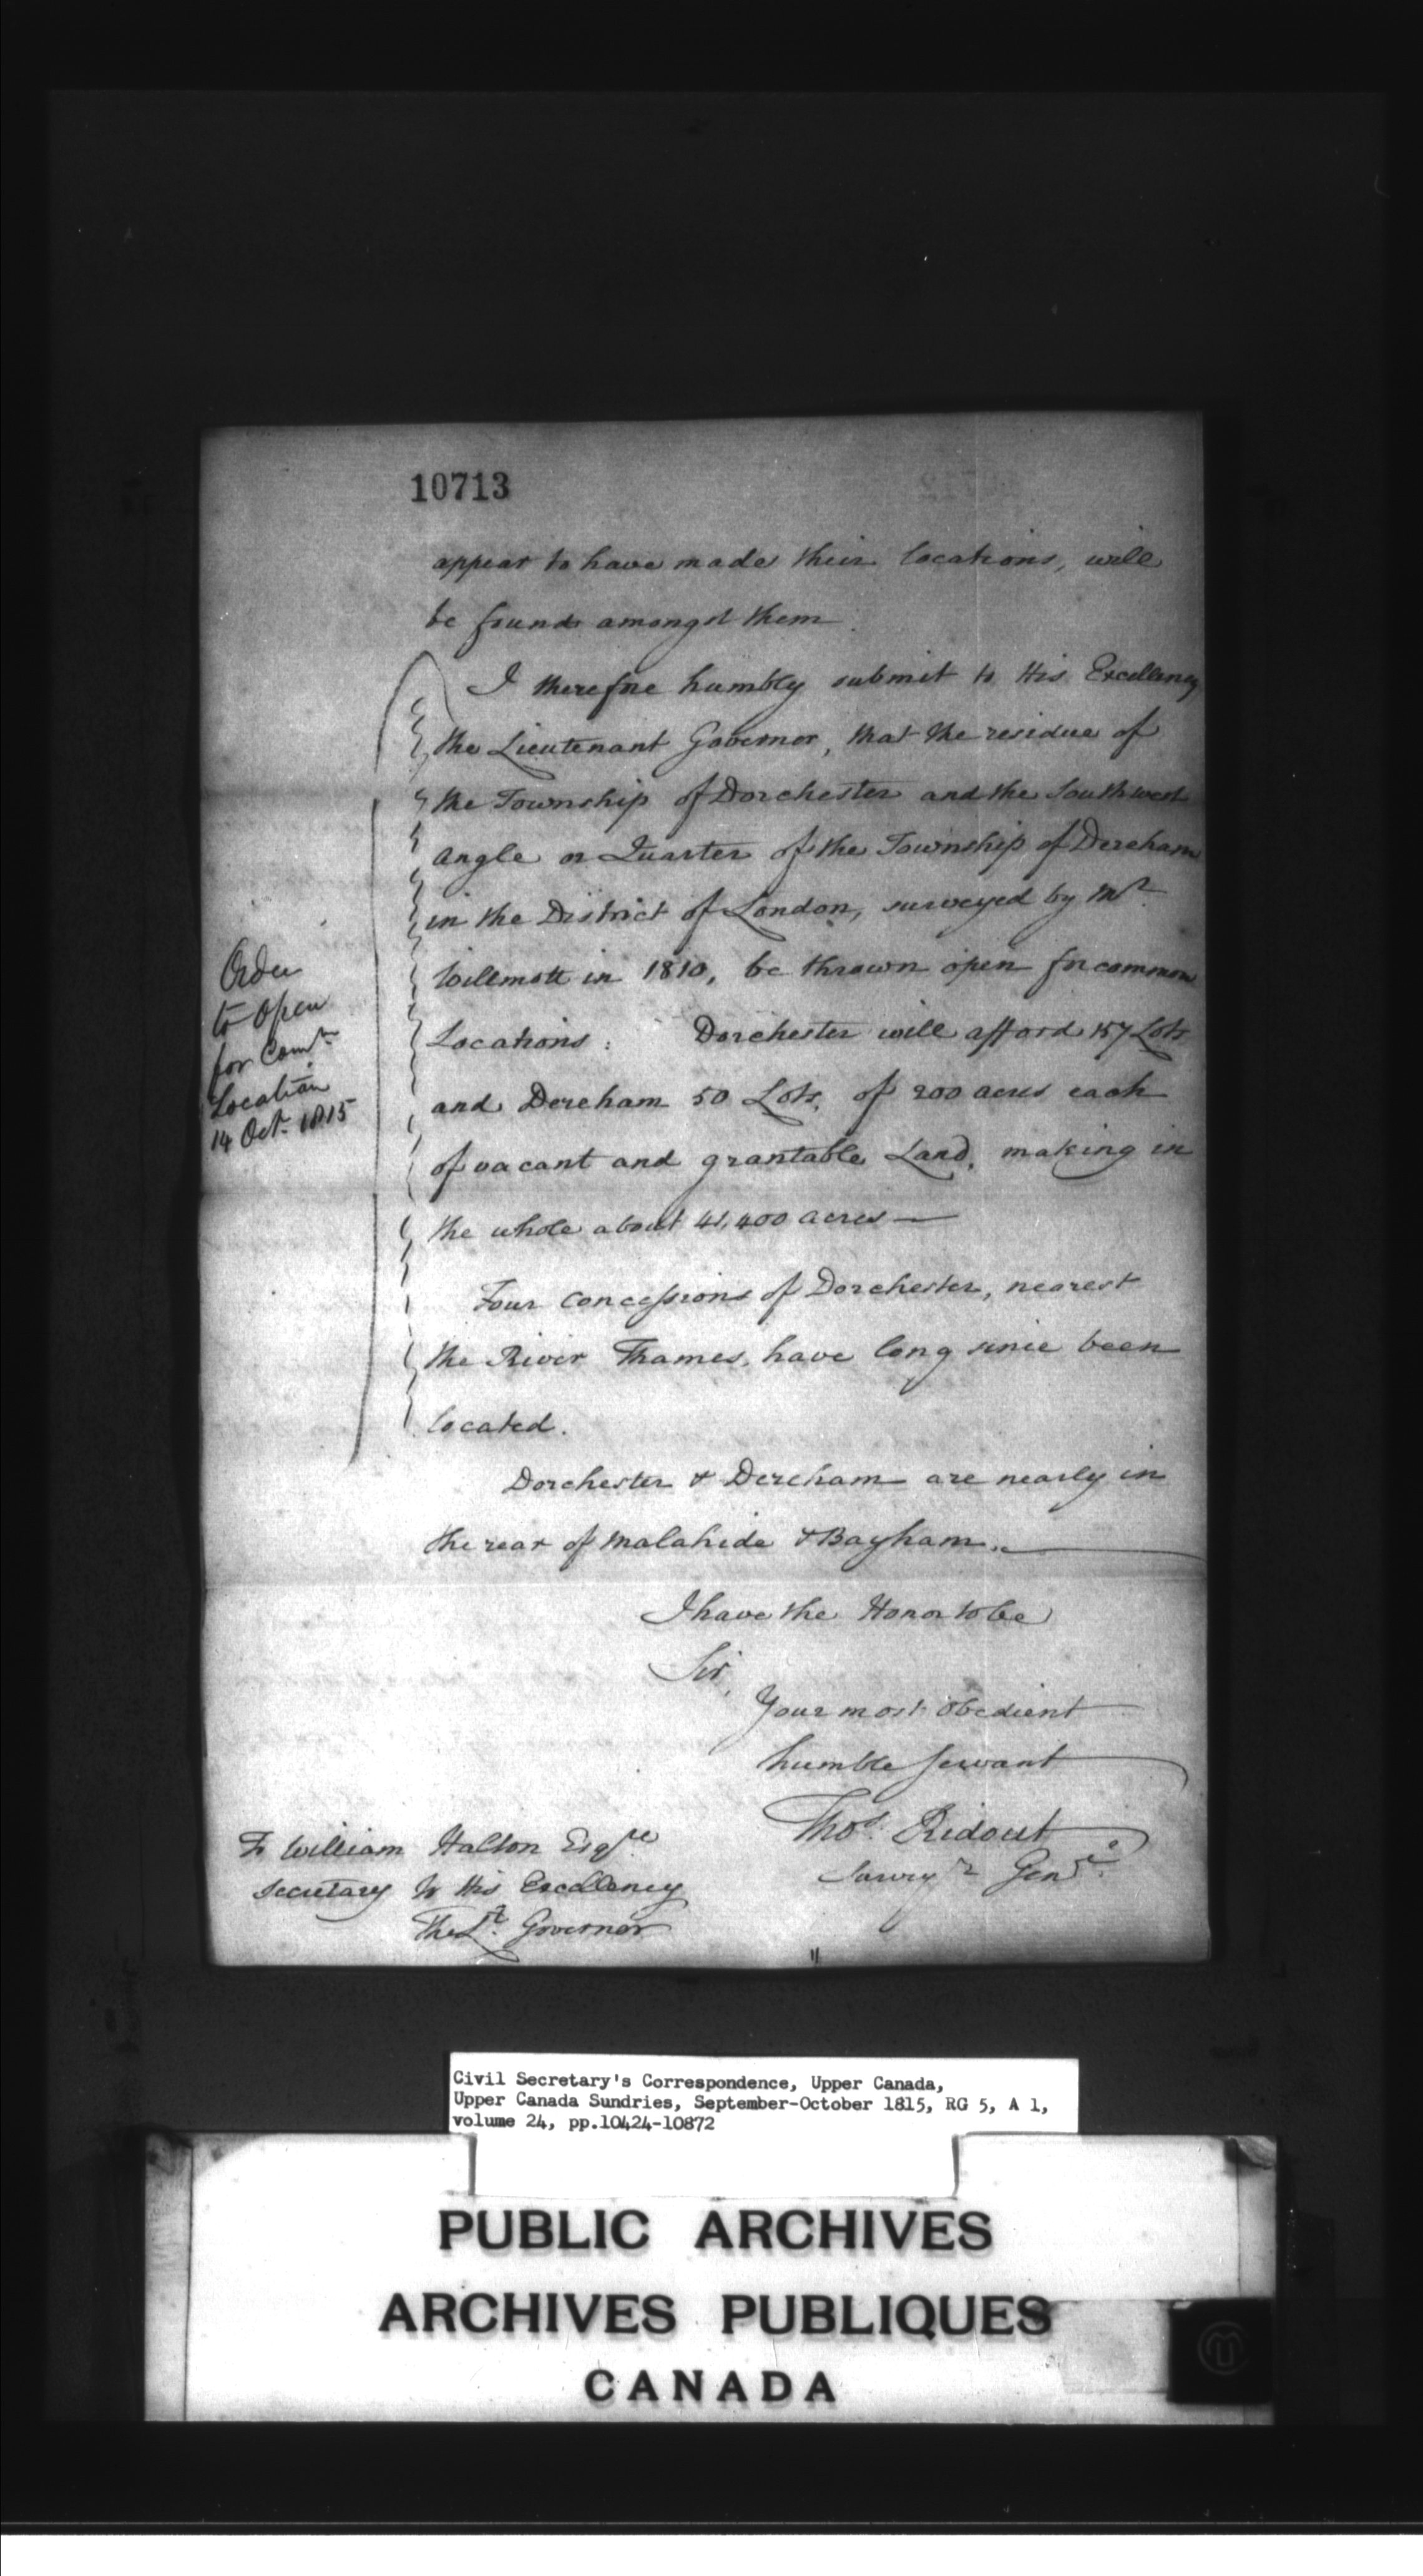 10713
appear to have made their locations, will
be found amongst them.
I therefore humbly submit to His Excellency
the Lieutenant Governor, that the residue of
the Township of Dorchester and the Southwest
Angle or Quarter of the Township of Dereham
in the District of London, surveyed by Mr.
Willmott in 1810, be thrown open for common
Locations: Dorchester will afford 157 Lots
and Dereham 50 Lots, of 200 acres each
of vacant and grantable Land, making in
the whole about 41,400 acres —
Four concessions of Dorchester, nearest
the River Thames, have long since been
located.
Dorchester & Dereham are nearly in
the rear of Malahide & Bayham. —
Order
to open
for Comn.
Location
14 Oct. 1815
I have the Honor to be
Sir,
Your most obedient
humble servant
Thos. Ridout
Surveyr Genl.
To William Halton Esqre
Secretary to His Excellency
The Lt. Governor
Civil Secretary's Correspondence, Upper Canada,
Upper Canada Sundries, September-October 1815, RG 5, A 1,
volume 24, pp.10424-10872
PUBLIC ARCHIVES
ARCHIVES PUBLIQUES
CANADA